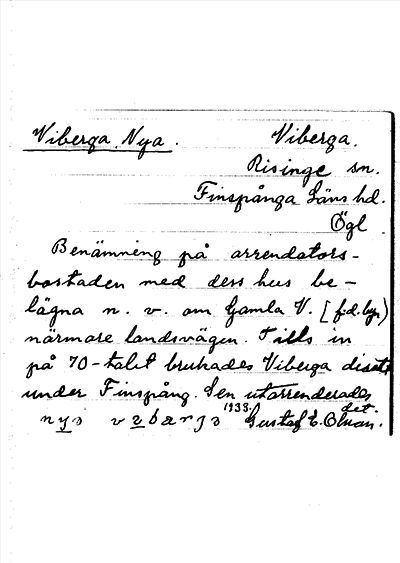 Viberga, Nya. Viberga.
Risinge sn.
Finspånga Läns hd.
Ögl.
Benämning på arrendators-
bostaden med dess hus be-
lägna n. v. om Gamla V. [f.d. byn)
närmare landsvägen. Tills in
på 70-talet brukades Viberga direkt
under Finspång. Sen utarrenderades
det.
1933. Gustaf E.